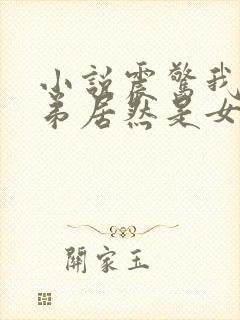 小説震驚我
弟居然是女
關家玉